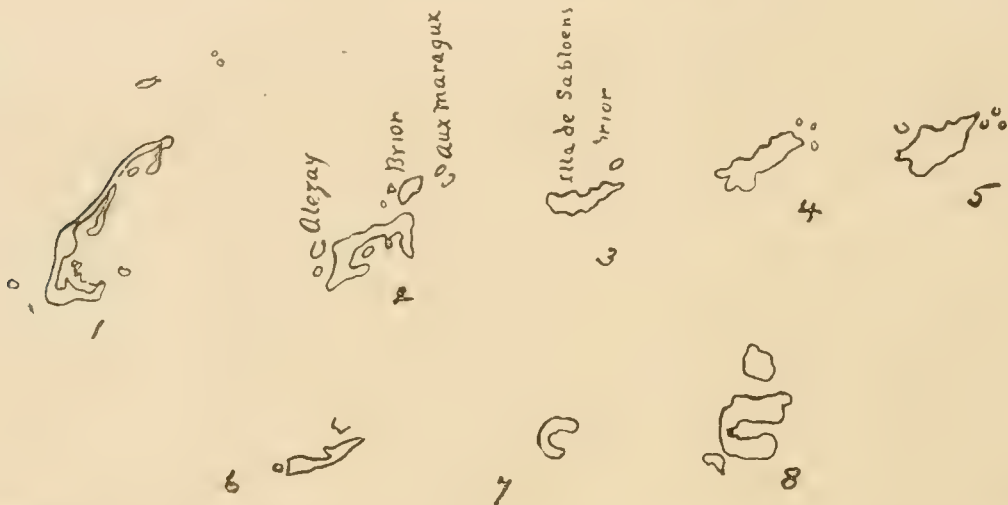 Alezay
Brior
aux maragux
Illa de Sabloens
brior
1
2
3
4
5
6
7
8